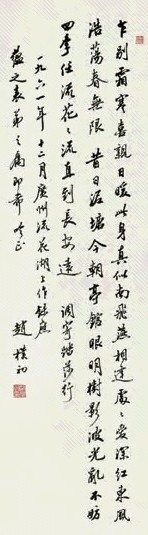 乍别霜寒喜亲日暖此身真似南飞燕相逢处々爱深红东风
浩荡春无限 昔日泥塘今朝亭馆眼明树影波光乱不妨
四季住流花々流直到长安远 调寄踏莎行
一九六一年十二月广州流花湖上作录应
之表弟之属即希吟正
赵朴初